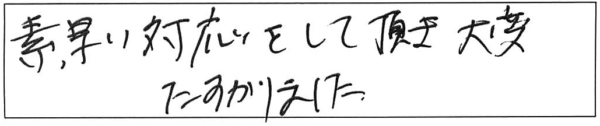 素早い対応をして頂き大変
たすかりました